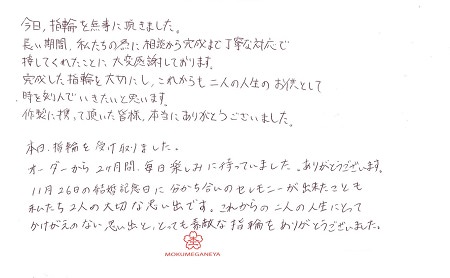 今日、指輪を無事に頂きました。
長い期間、私たちの為に相談から完成まで丁寧な対応で
接してくれたことに大変感謝しております。
完成した指輪を大切にし、これからも二人の人生のお供として
時を刻んでいきたいと思います。
作製に携って頂いた皆様、本当にありがとうございました。
本日、指輪を受け取りました。
オーダーから2ヶ月間、毎日楽しみに待っていました。ありがとうございます。
11月26日の結婚記念日に分かち合いのセレモニーが出来たことも
私たち2人の大切な思い出です。これからの二人の人生にとって
かけがえのない思い出と、とっても素敵な指輪をありがとうございました。
MOKUMEGANEYA